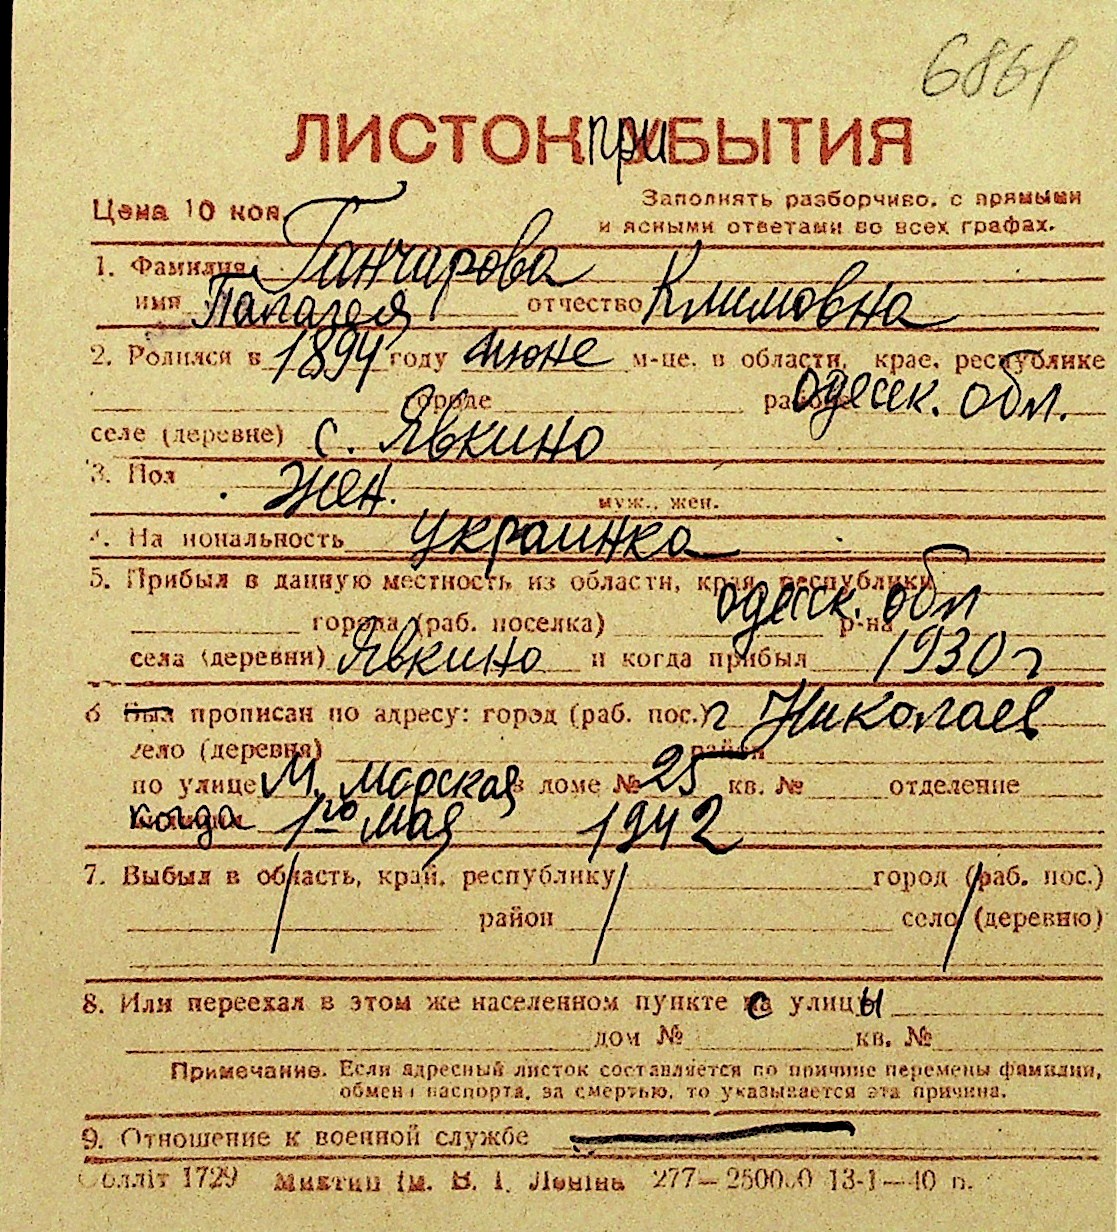 6861
ЛИСТОК ПРИБЫТИЯ
Цена 10 коп.
Заполнять разборчиво, с прямыми
и ясными ответами во всех графах.
1. Фамилия Ганчарова
имя Палагея отчество Климовна
2. Родился в 1894 году июне м-це, в области, крае, республике
городе районе одесск. обл.
селе (деревне) с. Явкино
3. Пол жен.
муж., жен.
4. На иональность украинка
5. Прибыл в данную местность из области, края, республики одесск. обл
города (раб. поселка) р-на
села (деревни) Явкино и когда прибыл 1930 г
6 Был прописан по адресу: город (раб. пос.) г Николаев
село (деревня) район
по улице М. Морская в доме № 25 кв. № отделение
когда 1го мая 1942
7. Выбыл в область, край, республику город (раб. пос.)
район село (деревню)
8. Или переехал в этом же населенном пункте с улицы
дом № кв. №
Примечание. Если адресный листок составляется по причине перемены фамилии,
обмена паспорта, за смертью, то указывается эта причина.
9. Отношение к военной службе
Облліт 1729 Миктип ім. В. І. Леніна 277—250000 13-1—40 п.